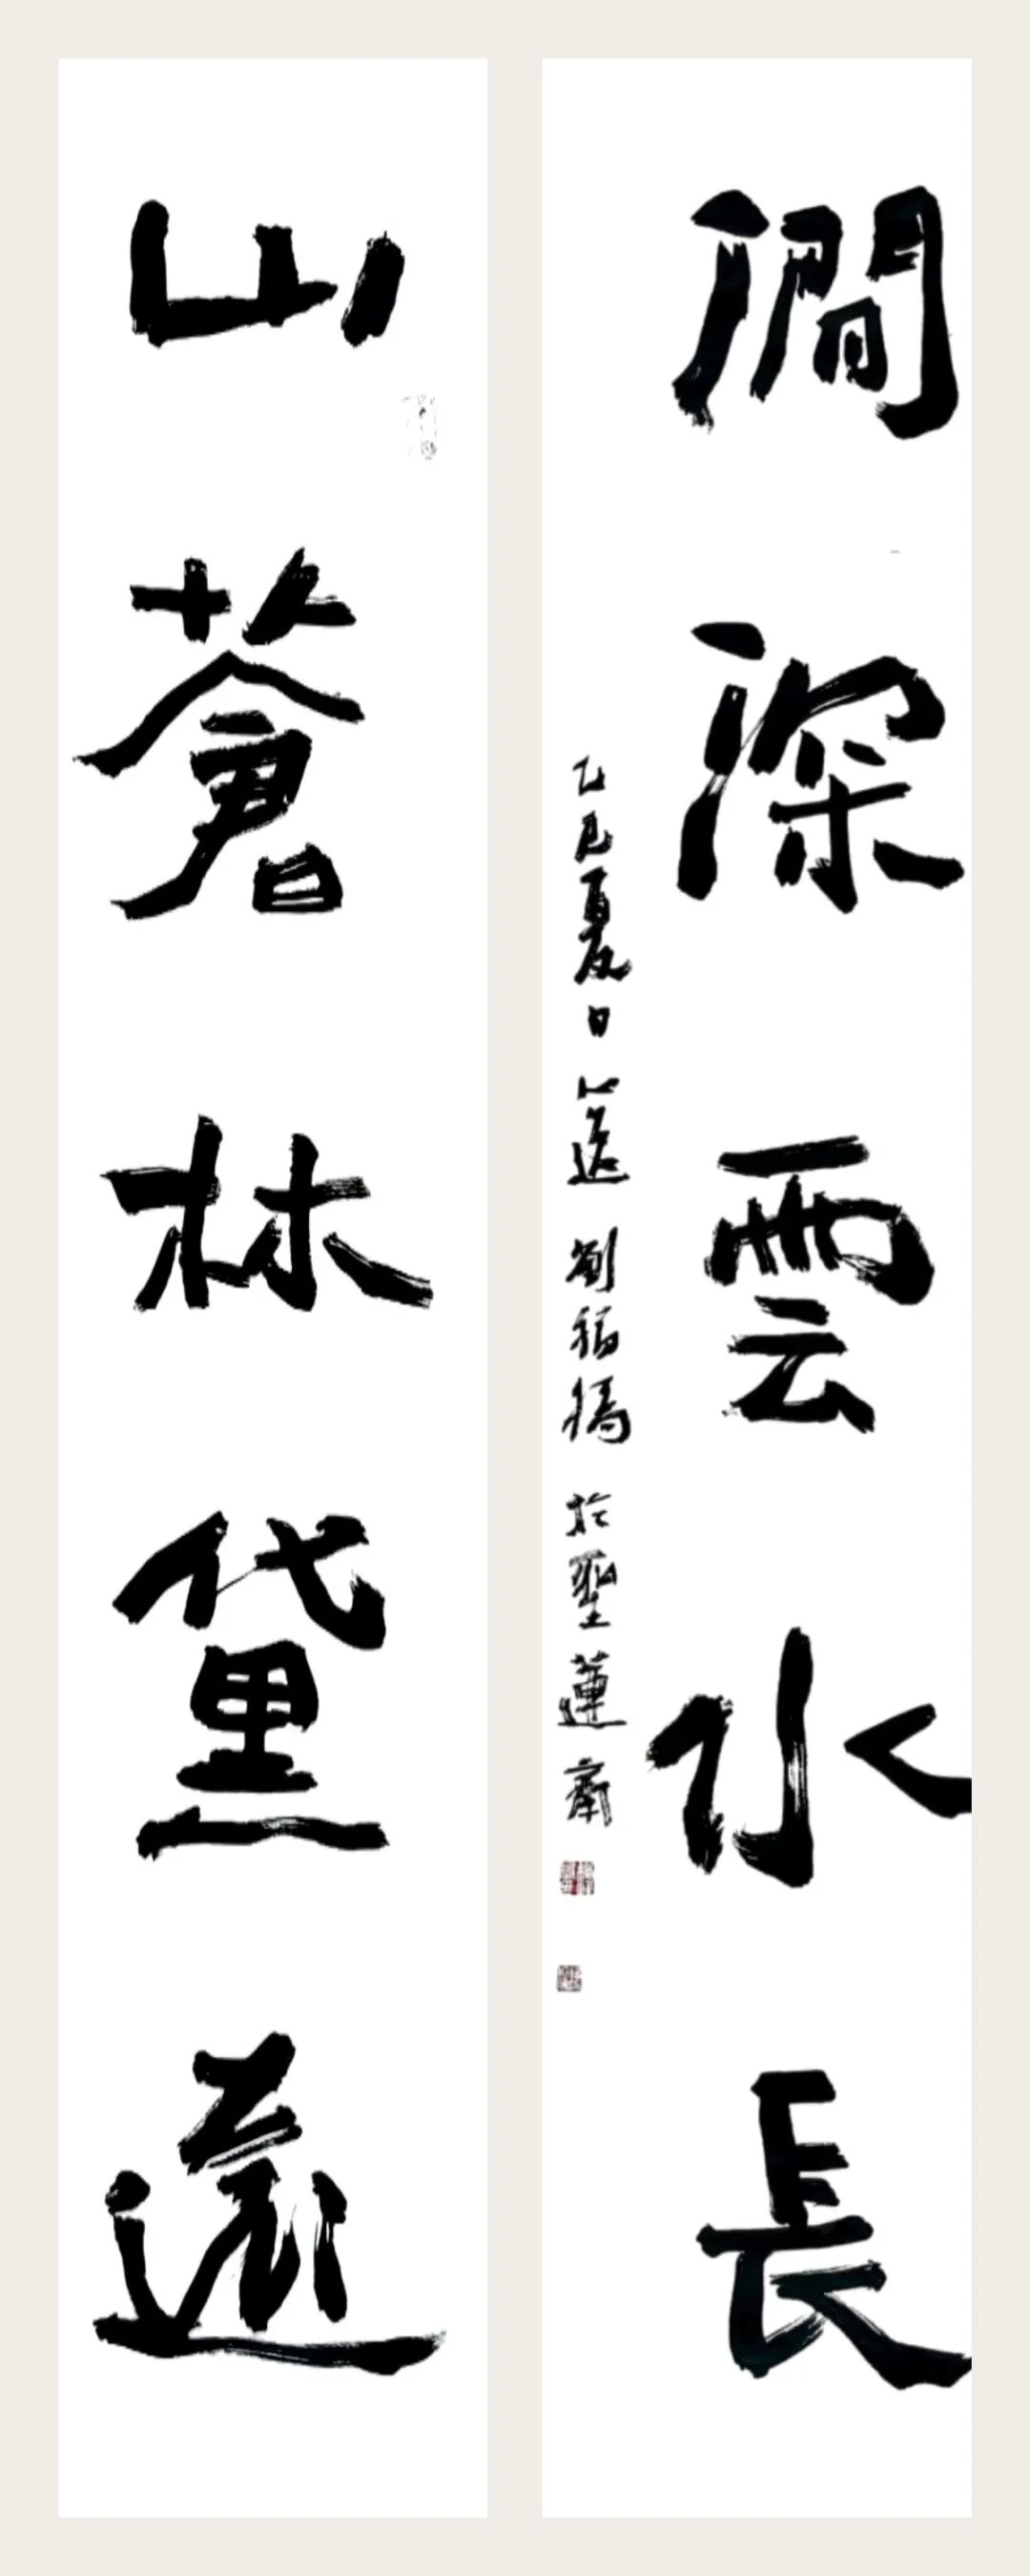 澗深雲水長
乙巳夏日 劉 於聖蓮齋
山蒼林黛遠